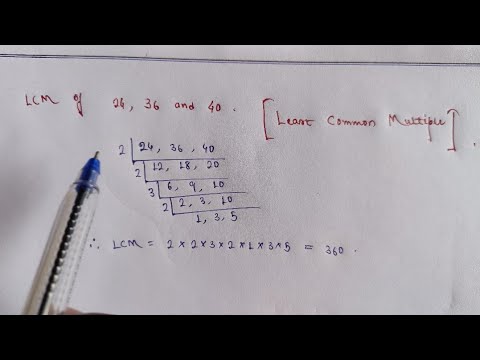 LCM of 24, 36 and 40. [Least Common Multiple].
2 | 24, 36, 40
2 | 12, 18, 20
3 | 6, 9, 10
2 | 2, 3, 10
1, 3, 5
∴ LCM = 2 × 2 × 3 × 2 × 1 × 3 × 5 = 360.